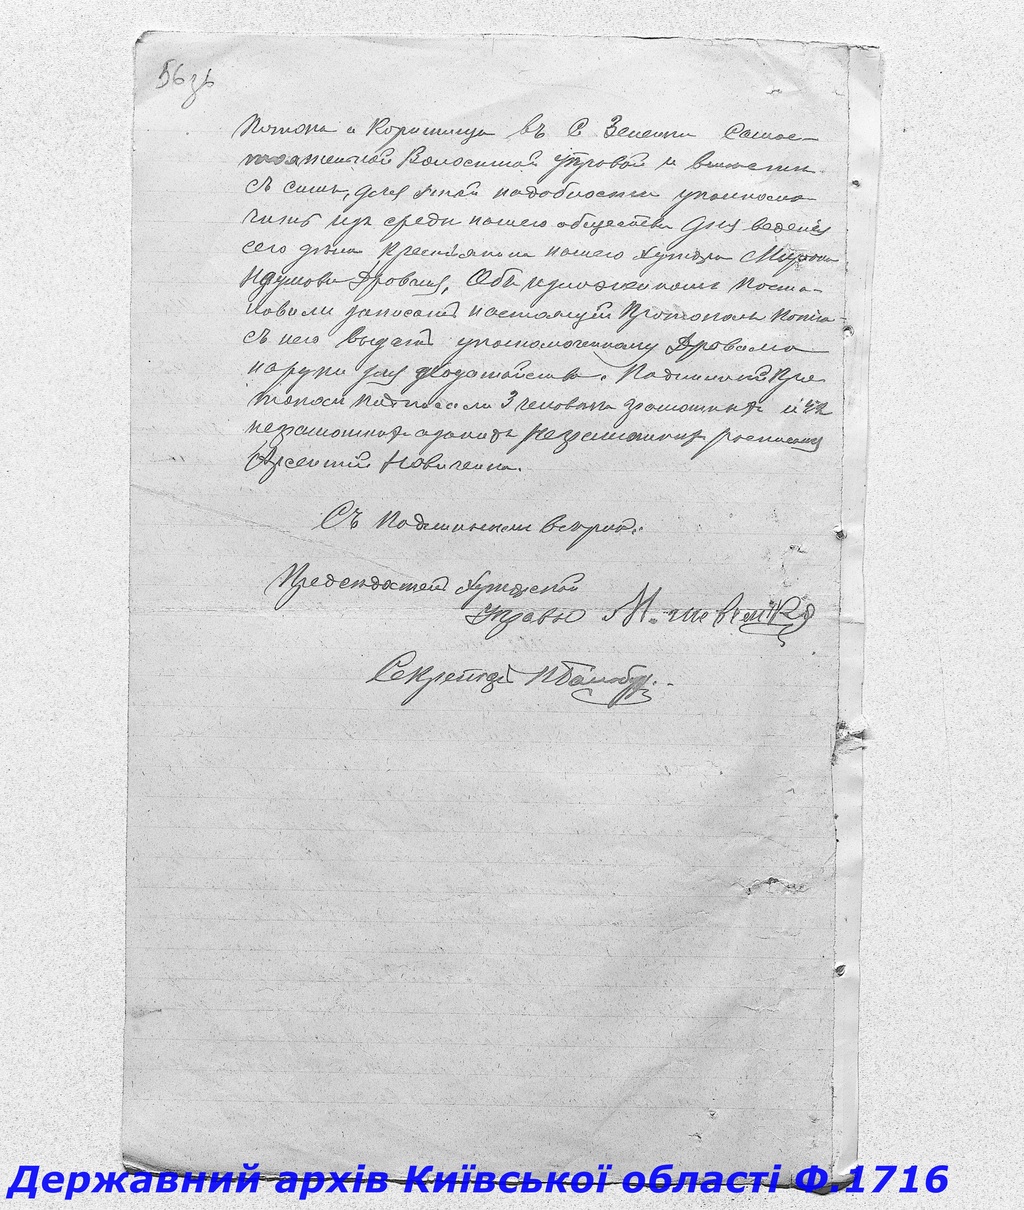 56 зв
и въ С Зеленки Самос-
Волостной управой и
съ симъ, для этой надобности уполномо
чить изъ среды нашего общества для веденія
сего дѣла крестьянина нашего хутора
Наумова Дроваля, Объ изложенномъ Поста-
новили записать настоящий Протоколъ Копію
съ него выдать уполномоченному Дровалю
наруки для ходатайства. Подлинный Про
токолъ подписали 3 человѣка грамотныхъ и
неграмотныхъ а за нихъ неграмотныхъ росписался
Арсентий Новиченко.
Съ Подлиннымъ вѣрно:
Председатель Хуторской
Управы М.
Секретарь
Державний архів Київської області Ф.1716